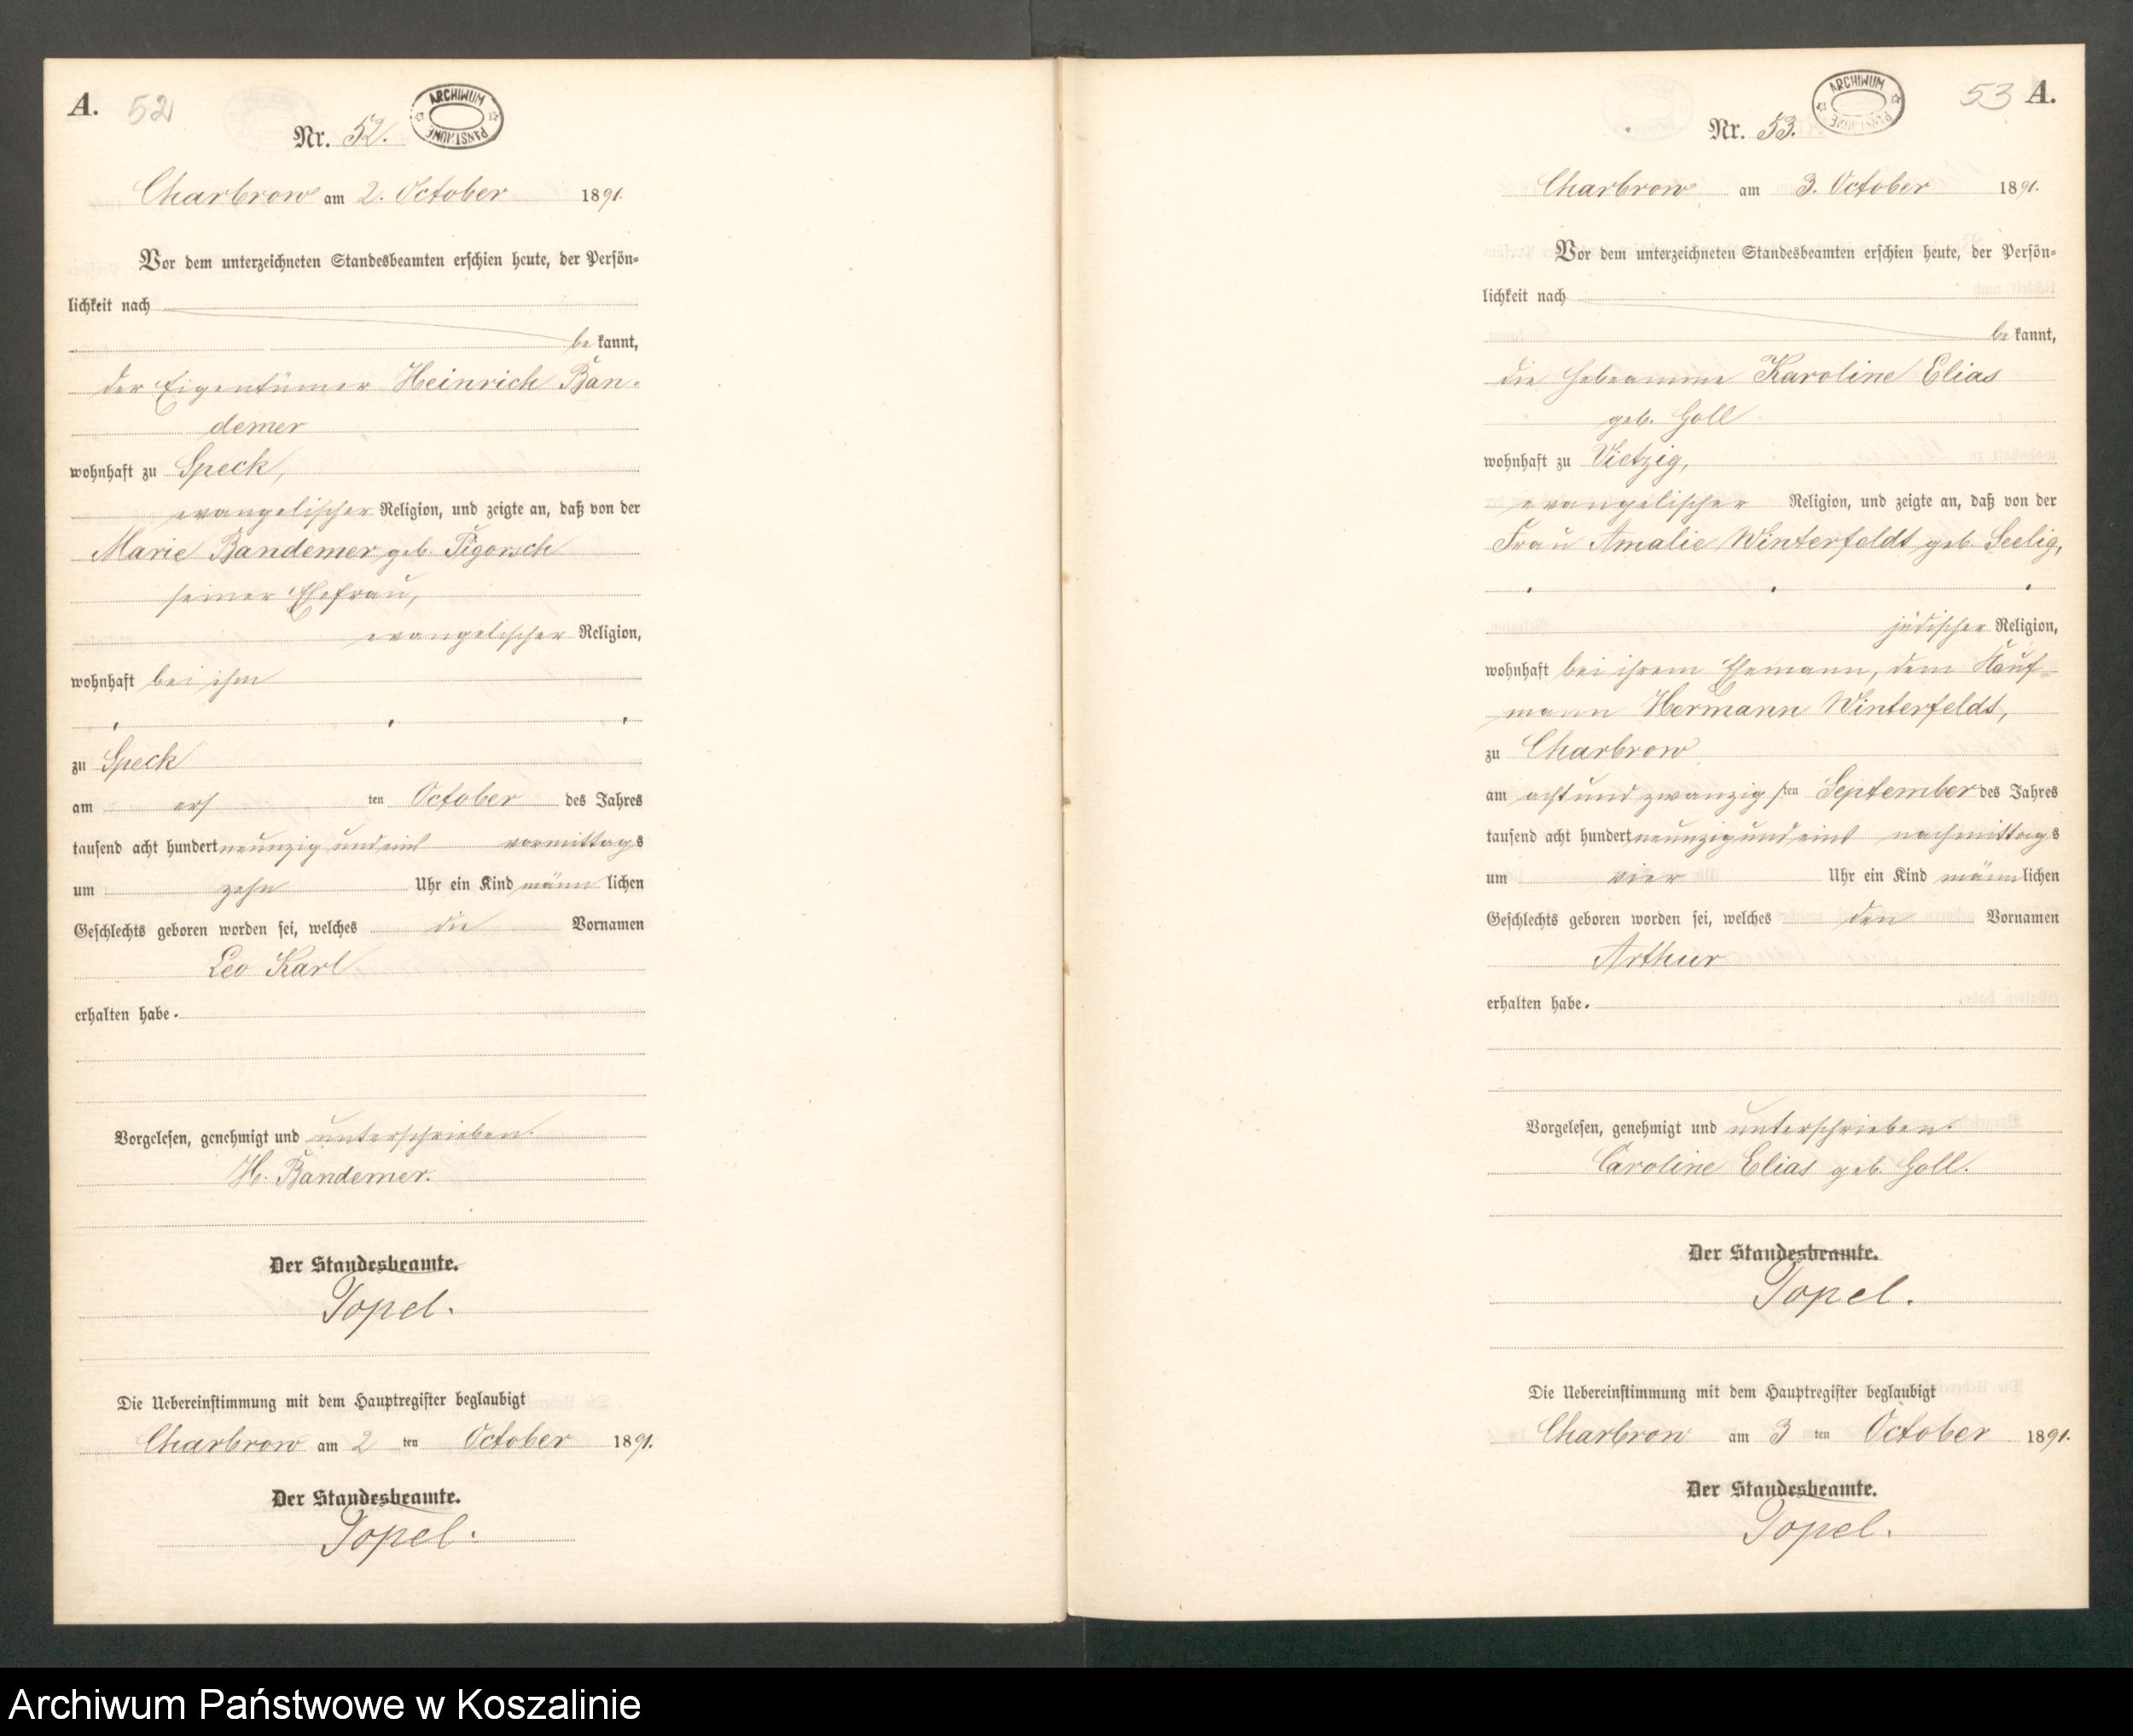 A. 52
ARCHIWUM PAŃSTWOWE
Nr. 52.
Charbrow am 2. October 1891.
Vor dem unterzeichneten Standesbeamten erschien heute, der Persön-
lichkeit nach
be kannt,
der Eigentümer Heinrich Ban-
demer
wohnhaft zu Speck,
evangelischer Religion, und zeigte an, daß von der
Marie Bandemer geb. Pigorsch
seiner Ehefrau,
evangelischer Religion,
wohnhaft bei ihm
zu Speck
am ers ten October des Jahres
tausend acht hundert neunzig und eins vormittags
um zehn Uhr ein Kind männ lichen
Geschlechts geboren worden sei, welches die Vornamen
Leo Karl
erhalten habe.
Vorgelesen, genehmigt und unterschrieben.
H. Bandemer.
Der Standesbeamte.
Topel.
Die Uebereinstimmung mit dem Hauptregister beglaubigt
Charbrow am 2 ten October 1891.
Der Standesbeamte.
Topel.
53 A.
ARCHIWUM PAŃSTWOWE
Nr. 53.
Charbrow am 3. October 1891.
Vor dem unterzeichneten Standesbeamten erschien heute, der Persön-
lichkeit nach
be kannt,
die Hebeamme Karoline Elias
geb. Holl
wohnhaft zu Vietzig,
evangelischer Religion, und zeigte an, daß von der
Frau Amalie Winterfeldt geb. Seelig,
jüdischer Religion,
wohnhaft bei ihrem Ehemann, dem Kauf-
mann Hermann Winterfeldt,
zu Charbrow
am acht und zwanzigs ten September des Jahres
tausend acht hundert neunzig und eins nachmittags
um vier Uhr ein Kind männlichen
Geschlechts geboren worden sei, welches den Vornamen
Arthur
erhalten habe.
Vorgelesen, genehmigt und unterschrieben.
Caroline Elias geb. Holl.
Der Standesbeamte.
Topel.
Die Uebereinstimmung mit dem Hauptregister beglaubigt
Charbrow am 3 ten October 1891.
Der Standesbeamte.
Topel.
Archiwum Państwowe w Koszalinie